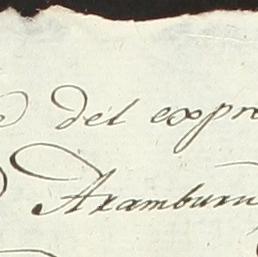 del expre
Aramburu